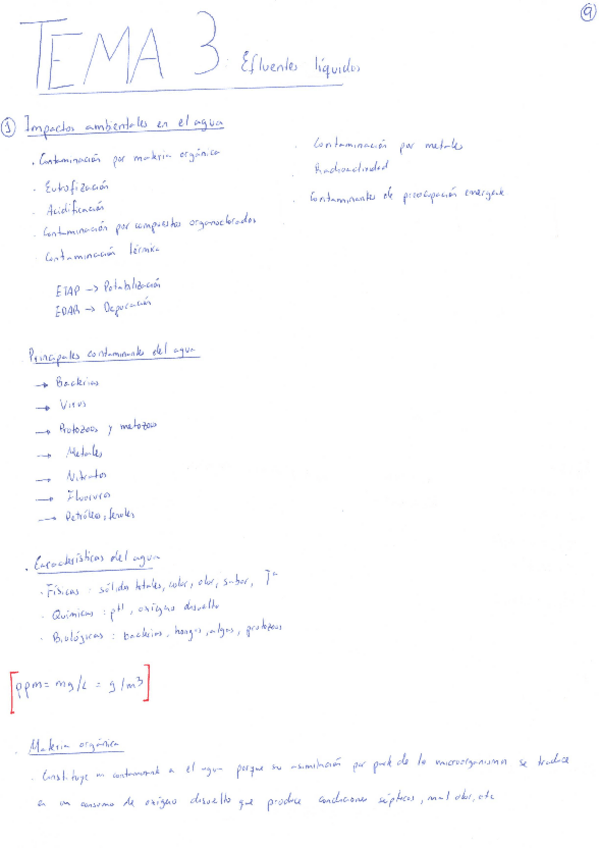 9
TEMA 3: Efluentes líquidos
1 Impactos ambientales en el agua
· Contaminación por materia orgánica
· Eutrofización
· Acidificación
· Contaminación por compuestos organoclorados
· Contaminación térmica
· Contaminación por metales
· Radioactividad
· Contaminantes de preocupación emergente
ETAP -> Potabilización
EDAR -> Depuración
Principales contaminantes del agua
-> Bacterias
-> Virus
-> Protozoos y metozoos
-> Metales
-> Nitratos
-> Fluoruros
-> Petróleo, fenoles
· Características del agua
· Físicas: sólidos totales, color, olor, sabor, Tª
· Químicas: pH, oxígeno disuelto
· Biológicas: bacterias, hongos, algas, protozoos
[ppm = mg/L = g/m³]
· Materia orgánica
· Constituye un contaminante a el agua porque su asimilación por parte de lo microorganismos se traduce
en un consumo de oxígeno disuelto que produce condiciones sépticas, mal olor, etc